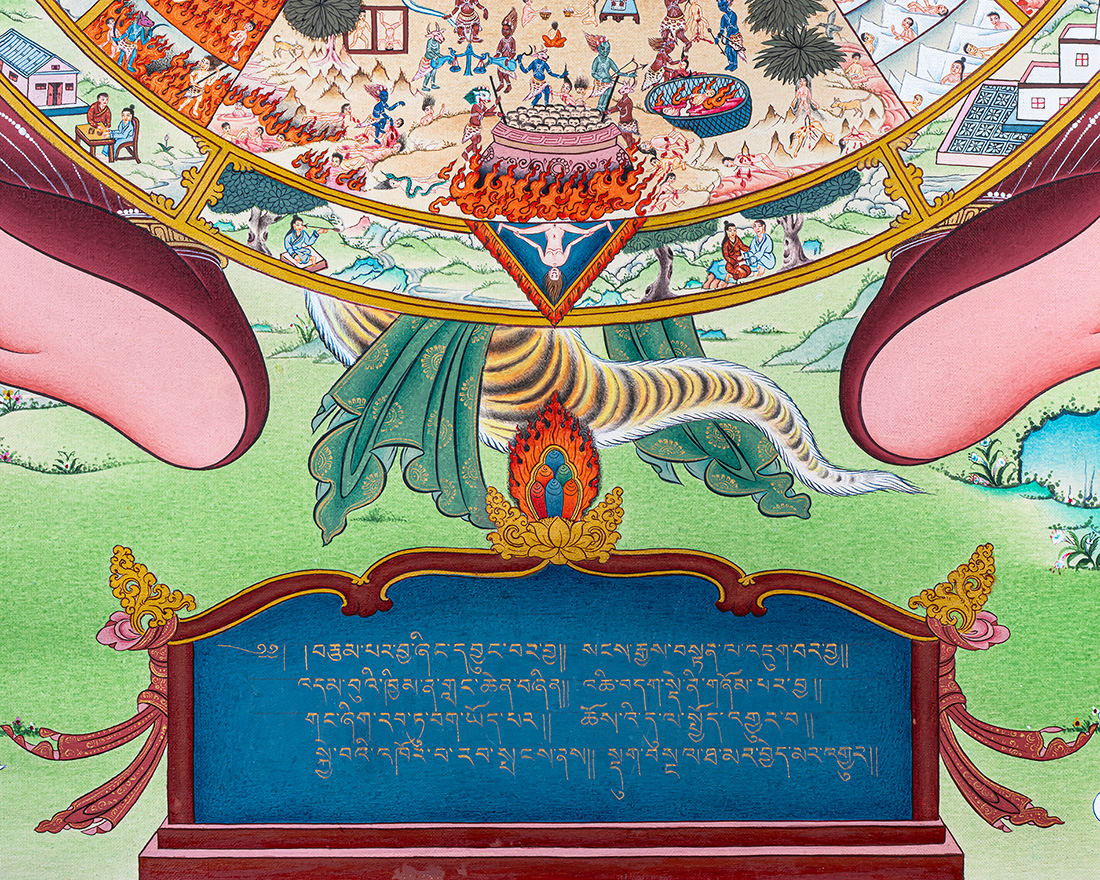 ༄༅། །བརྩམ་པར་བྱ་ཞིང་དབྱུང་བར་བྱ།། སངས་རྒྱས་བསྟན་ལ་འཇུག་བར་བྱ།།
འདམ་བུའི་ཁྱིམ་ན་གླང་ཆེན་བཞིན།། འཆི་བདག་སྡེ་ནི་གཞོམ་པར་བྱ།།
གང་ཞིག་རབ་ཏུ་བག་ཡོད་པར།། ཆོས་འི་དུ་ལ་སྤྱོད་འགྱུར་བ།།
སྐྱེ་བའི་དཁོར་བ་རབ་སྤངས་ནས།། སྡུག་བསྔལ་ཐ་མར་བྱེད་མར་འགྱུར།།